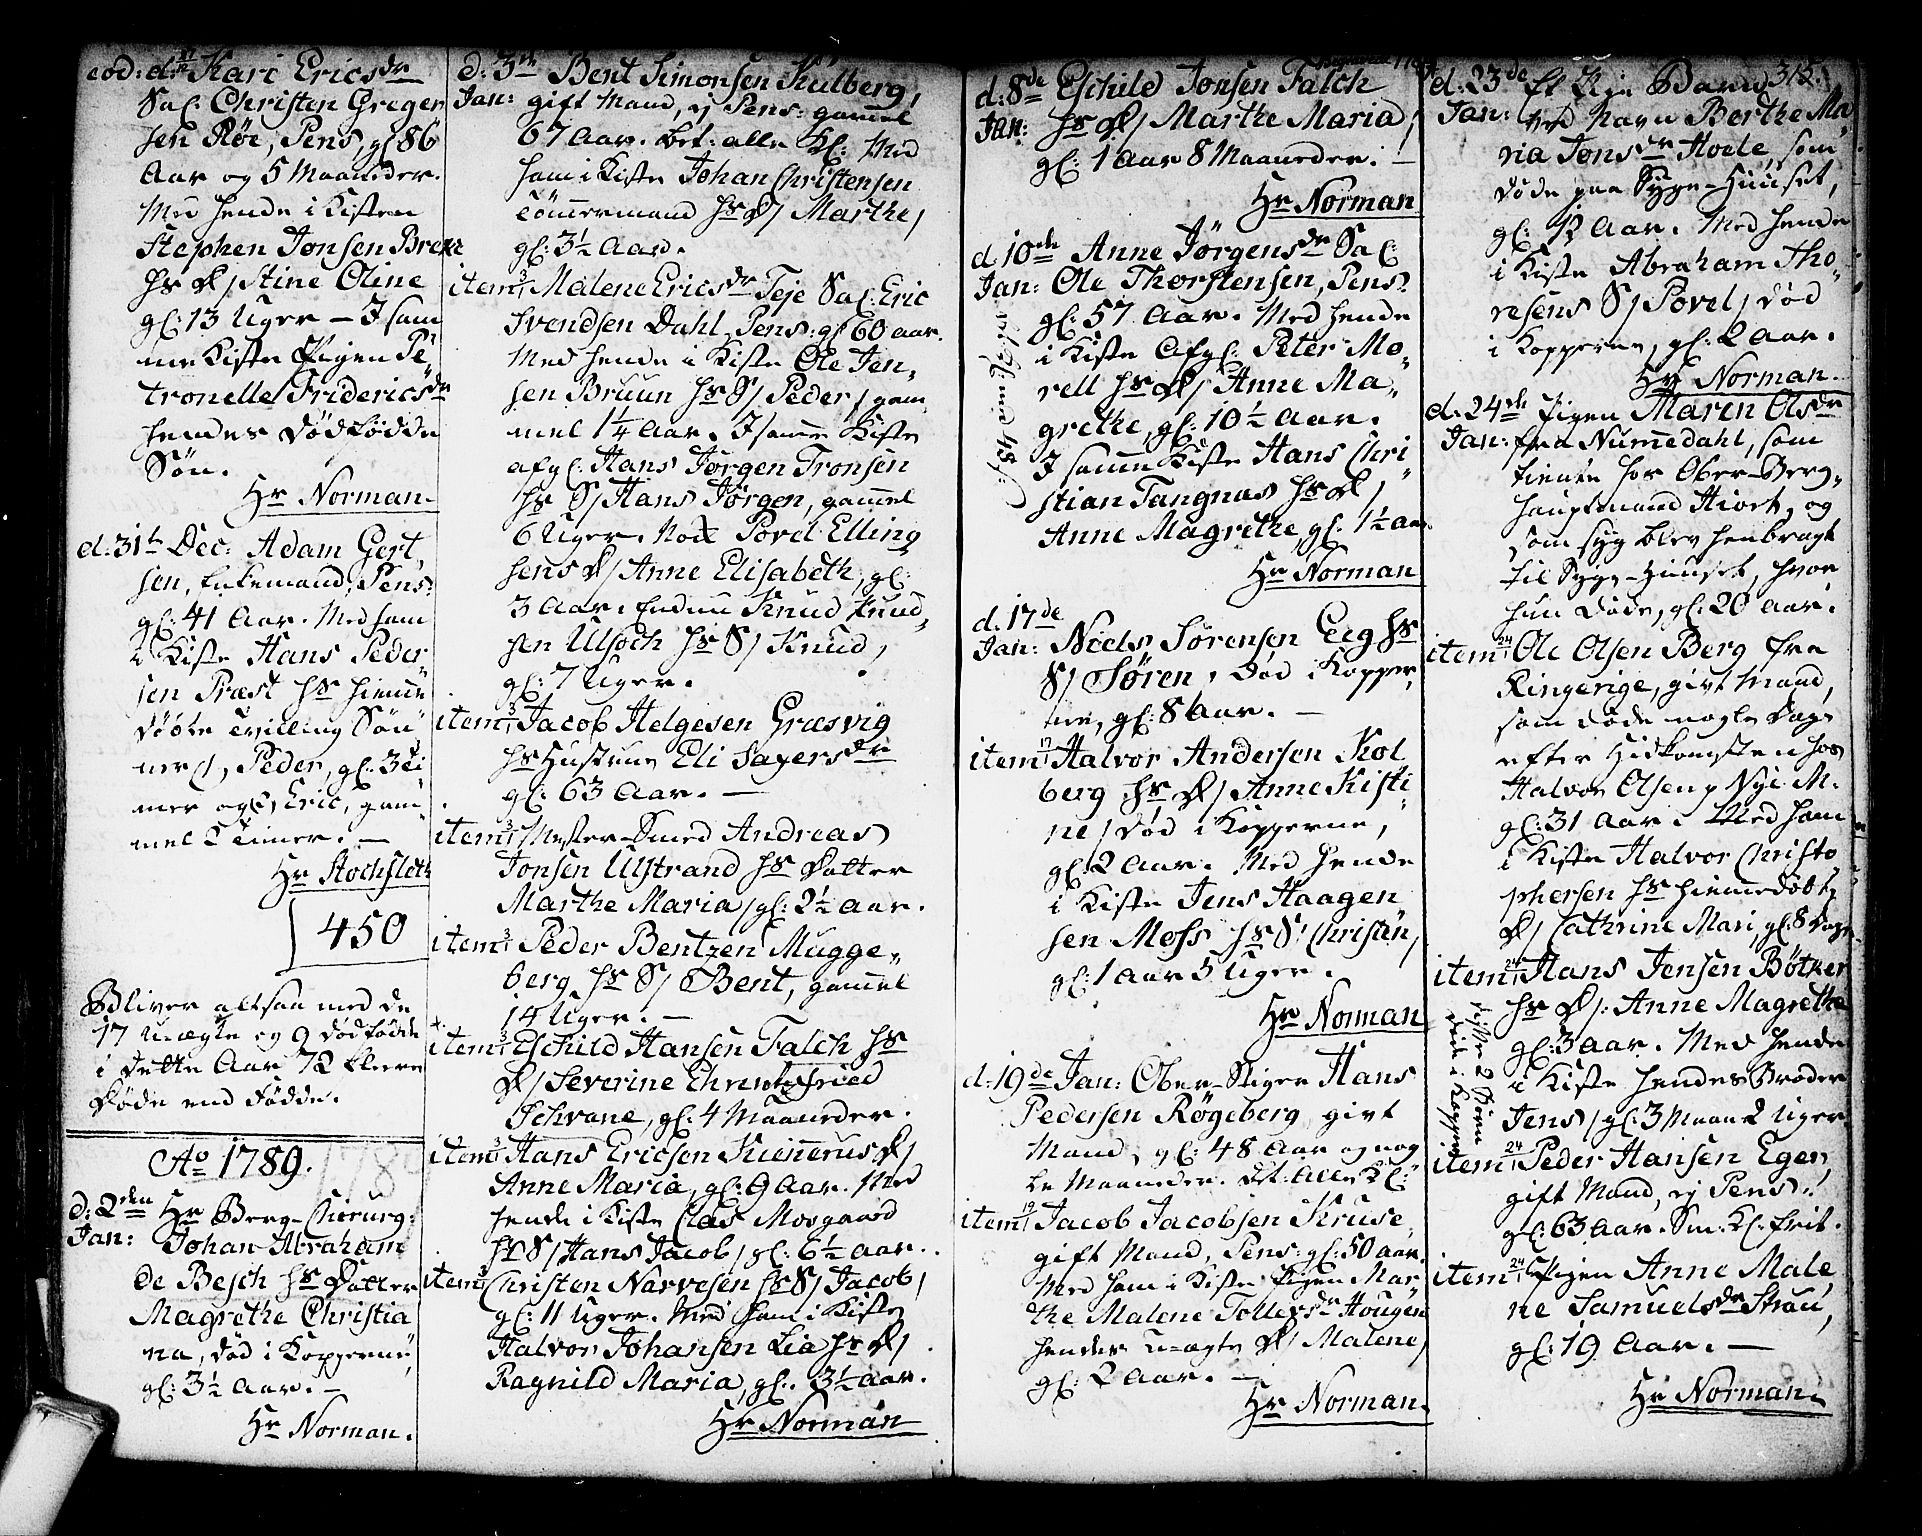 eod: d: Kari Ericsdr
Sal: Christen Greger
sen Röe, Pens, gl: 86
Aar og 5 Maaneder.
Med hende i Kisten
Stephen Jonsen Brekke
hs D/ Stine Oline
gl: 13 Uger – I sam
me Kiste Pigen Pe
tronelle Fridericsdr
hendes Dödfödde
Sön.
Hr Norman
d: 31te Dec: Adam Gert
sen, Enkemand, Pens:
gl: 41 Aar. Med ham
i Kiste Hans Peder
sen Præst hs hiemme
döbte Tvilling Sön
ner 1, Peder, gl: 3 Ti
mer og 2, Eric, gam
mel 2 Timer. –
Hr Stochfleth
450
Bliver altsaa med de
17 Uægte og 9 dödfödde
i dette Aar 72 fleere
Döde end Födde.
Ao 1789.
d: 2den Hr Berg-Chirurg:
Jan: Johan Abraham
de Besch hs Datter
Magrethe Christia
na, död i Kopperne,
gl: 3½ Aar. –
Hr Norman.
d: 3die Bent Simonsen Kulberg,
Jan: gift Mand, ej Pens: gammel
67 Aar. bet: alle Kl: Med
ham i Kiste Johan Christensen
Tömmermand hs D/ Marthe/
gl: 3½ Aar.
item 3/1 Malene Ericsdr Teje Sal: Eric
Svendsen Dahl, Pens: gl: 60 aar.
Med hende i Kiste Ole Jen,
sen Bruun hs S/ Peder/ gam
mel 1¼ Aar. I samme Kiste
afgl: Hans Jörgen Tronsen
hs S/ Hans Jörgen, gammel
6 Uger. Nok Povel Elling
sens D/ Anne Elisabeth, gl:
3 Aar. Endnu Knud Knud
sen Ulsoch hs S/ Knud/
gl: 7 Uger.
item 3/1 Jacob Helgesen Græsvig
hs Hustrue Eli Sagersdr
gl: 63 Aar. –
item 3/1 Mester-Smed Andreas
Jonsen Ulstrand hs Datter
Marthe Maria/ gl: 2½ Aar.
item 3/1 Peder Bentzen Mugge
berg hs S/ Bent, gammel
14 Uger. –
item 3/1 Eschild Hansen Falch hs
D/ Severine Ehrentzfried
Schvane, gl: 4 Maaneder.
item 3/1 Hans Ericsen Kiennerus D/
Anne Maria, gl: 9 Aar. Med
hende i Kiste Clas Mosgaard
hs S/ Hans Jacob/ gl: 6½ Aar.
item 3/1 Christen Narvesen hs S/ Jacob/
gl: 11 Uger. Med ham i Kiste
Halvor Johansen Lia hs D/
Ragnild Maria, gl: 3½ Aar.
Hr Norman
d: 8de Eschild Jonsen Falch
Jan: hs D/ Marthe Maria/
gl: 1 Aar 8 Maaneder. –
Hr Norman
d 10de Anne Jörgensdr Sal:
Jan: Ole Thorstensen, Pens:
gl: 57 Aar. Med hende
i Kiste Afgl: Peter Mo
rell hs D/ Anne Ma
grethe, gl: 10½ Aar.
I samme Kiste Hans Chri
stian Tangnas hs D/
Anne Magrethe gl: 1½ Aar
Hr Norman
d. 17de
Jan: Niels Sörensen Eeg hs
S/ Sören, Död i Kopper
ne, gl: 8 Aar. –
item 17/1 Halvor Andersen Kol
berg hs D/ Anne Kisti
ne/ död i Kopperne,
gl: 2 Aar. Med hende
i Kiste Jens Haagen
sen Moss hs S/ Christen/
gl: 1 Aar 5 Uger.
Hr Norman
d: 19de Jan: Ober-Stiger Hans
Pedersen Rögeberg givt
Mand, gl: 48 Aar og nog
le Maaneder. bet: alle Kl:
item 19/1 Jacob Jacobsen Kruse
gift Mand, Pens: gl: 50 aar.
Med ham i Kiste Pigen Mar
the Malene Tollefsdr Hougen
hendes Uægte D/ Malene/
gl: 2 Aar. –
Hr Norman.
315.
d. 23de Et Pige Barn
Jan: ved Navn Berthe Ma
ria Jonsdr Hoele, som
döde paa Syge-Huuset,
gl: 12 Aar. Med hende
i Kiste Abraham Tho
resens S/ Povel/ död
i Kopperne, gl: 2 Aar.
Hr Norman.
d. 24de Pigen Maren Olsdr
Jan: fra Nummedahl, som
tiente hos Ober-Berg
hauptmand Hiort, og
som syg blev henbragt
til Syge-Huuset, hvor
hun döde, gl: 20 Aar.
item 24/1 Ole Olsen Berg fra
Ringerige, givt Mand,
som döde nogle Dage
efter Hidkomsten hos
Halvor Olsen p Nye M.
gl: 31 Aar. Med ham
i Kiste Halvor Christo
phersen hs hiemmedöbt
D/ Cathrine Mari, gl: 8 Dage
item 24/1 Hans Jensen Bötker
hs D/: Anne Magrethe
gl: 3 Aar. Med hende
i Kiste hendes Broder
Jens/ gl: 3 Maan: 2 Uger
disse 2 Börn
döde i Kopper
item 24/1 Peder Hansen Eger,
gift Mand, ej Pens:
gl: 63 Aar. Sm: Kl: frit.
item 24/1 Pigen Anne Male
ne Samuelsdr Strau,
gl: 19 Aar. –
Hr Norman